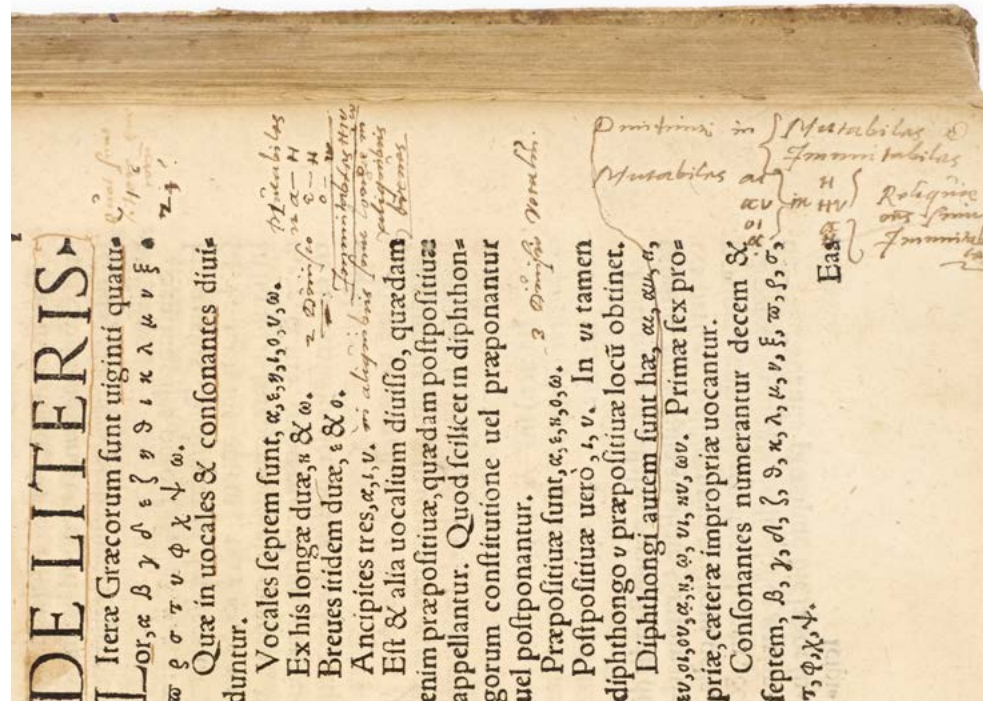 DE LITERIS.
Literæ Græcorum sunt uiginti quatu⸗
or, α β γ δ ε ζ η ϑ ι κ λ μ ν ξ ο
ϖ ρ σ τ υ φ χ ψ ω.
24
Quæ in uocales & consonantes diui⸗
duntur.
Vocales septem sunt, α, ε, η, ι, ο, υ, ω.
Ex his longæ duæ, η & ω.
Breues itidem duæ, ε & ο.
Ancipites tres, α, ι, υ.
Est & alia uocalium diuisio, quædam
enim præpositiuæ, quædam postpositiuæ
appellantur. Quod scilicet in diphthon⸗
gorum constitutione uel præponantur
uel postponantur.
Præpositiuæ sunt, α, ε, η, ο, ω.
Postpositiuæ uerò, ι, υ. In υι tamen
diphthongo υ præpositiuæ locū obtinet.
Diphthongi autem sunt hæ, αι, αυ, ει,
ευ, οι, ου, ᾳ, ῃ, ῳ, υι, ηυ, ωυ. Primæ sex pro⸗
priæ, cæteræ impropriæ uocantur.
Consonantes numerantur decem &
septem, β, γ, δ, ζ, ϑ, κ, λ, μ, ν, ξ, ϖ, ρ, σ,
τ, φ, χ, ψ.
Eas
2 Diuisio
Mutabiles
α — η
ε — η
ο — ω
Immutabiles η ι υ ω
in aliquibus
breues
3 Diuisio
in { Mutabiles &
Immutabiles
Mutabiles αι
αυ
οι
in η
ηυ
Reliquæ
Immutabi